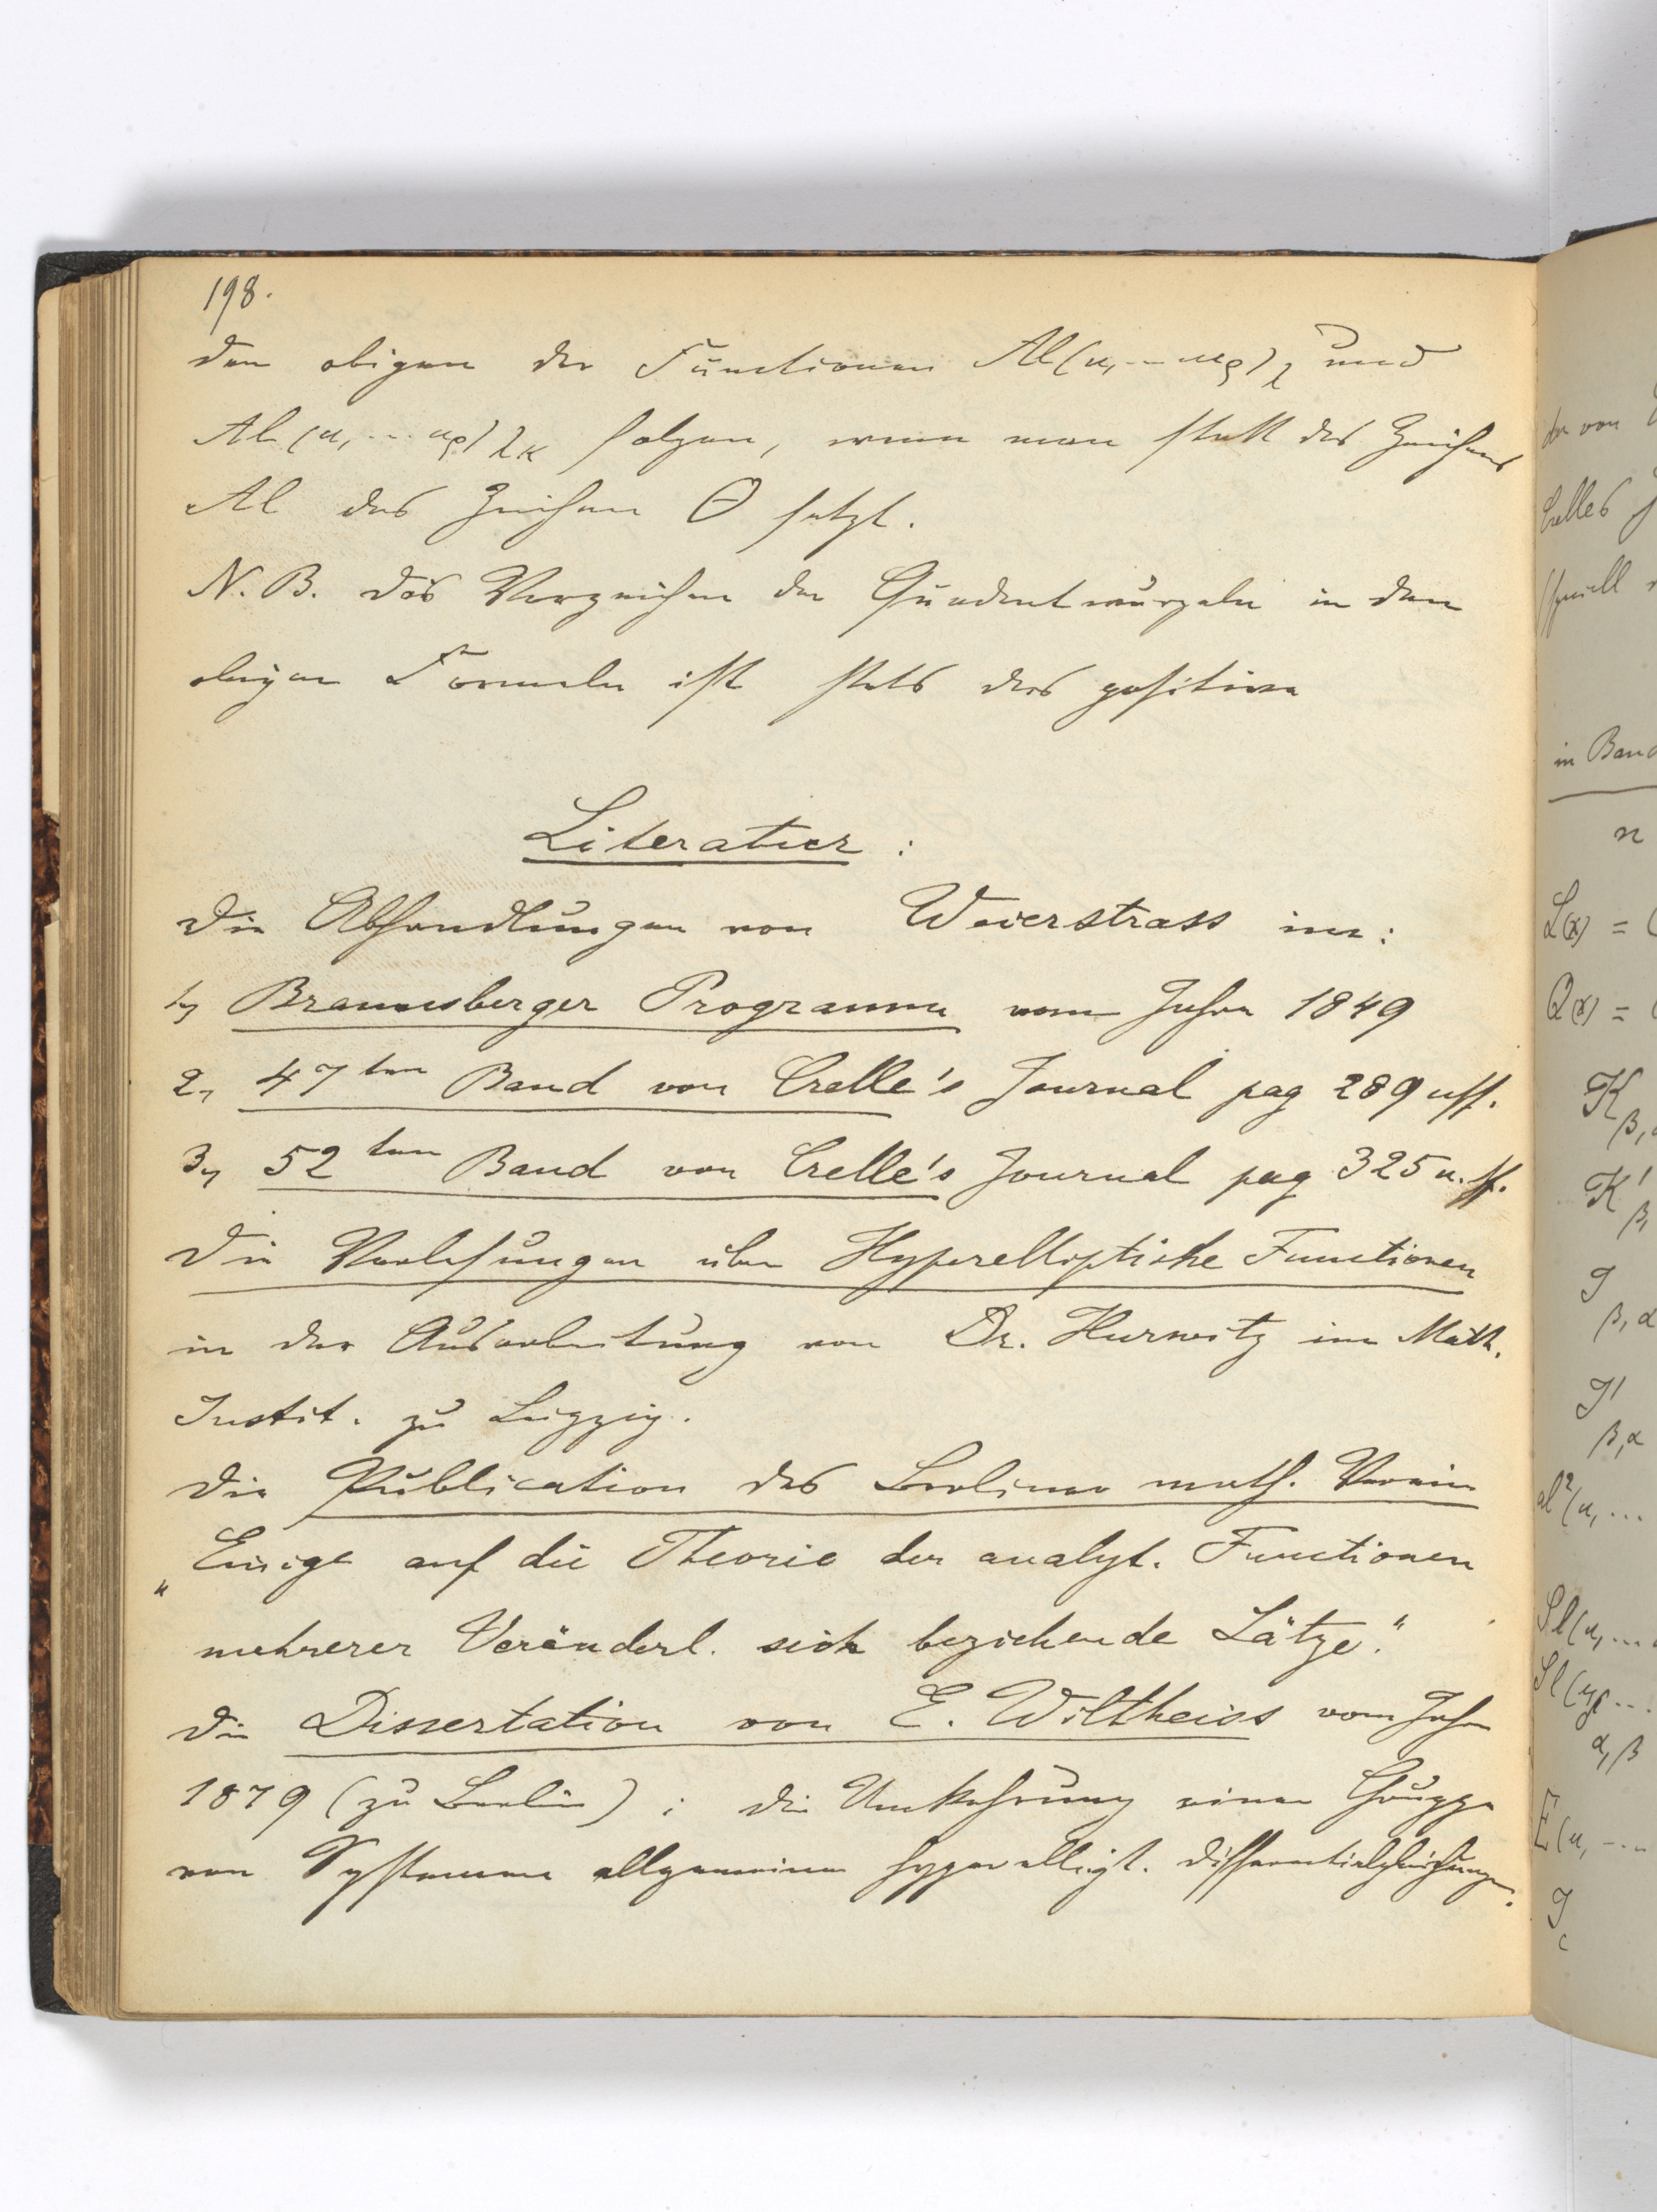 198.
den obigen der Functionen Al(u₁...uρ)λ und
Al(u₁...uρ)λκ folgen, wenn man statt des Zeichens
Al das Zeichen Θ setzt.
N.B. Das Vorzeichen der Quadratwurzeln in den
obigen Formeln ist stets das positive
Literatur:
Die Abhandlungen von Weierstrass im:
1, Braunsberger Programm vom Jahre 1849
2, 47ten Band von Crelle's Journal pag 289 uff.
3, 52ten Band von Crelle's Journal pag 325 u. ff.
Die Vorlesungen über Hyperelliptische Functionen
in der Ausarbeitung von Dr. Hurwitz im Math.
Instit. zu Leipzig.
Die Publication des Berliner math. Verein
„Einige auf die Theorie der analyt. Functionen
mehrerer Veränderl. sich beziehende Sätze.“
Die Dissertation von E. Wiltheiss vom Jahre
1879 (zu Berlin): die Umkehrung einer Gruppe
von Systemen allgemeiner hyperellipt. Differentialgleichungen.
der von
Crelles J
speciell
in Band
n
L(x) =
Q(x) =
K β,
K' β,
J β,α
J' β,α
al²(u₁...
α,β